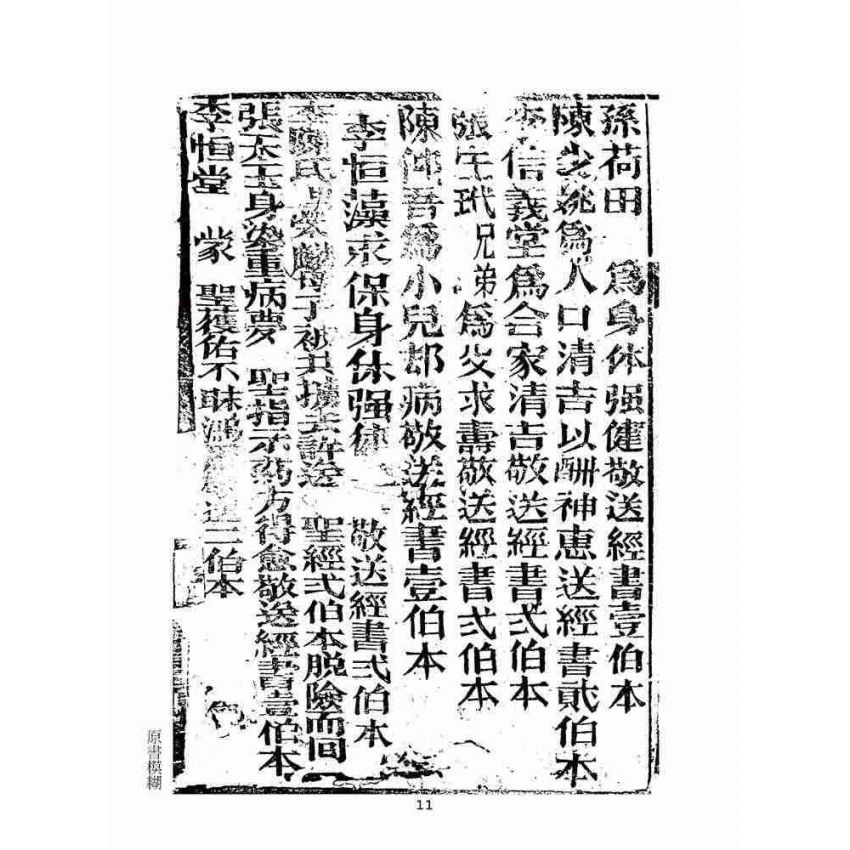 孫荷田　為身体强健敬送經書壹伯本
陳 姚為人口清吉以酬神恵送經書貮伯本
李信義堂為合家清吉敬送經書弍伯本
張玉玳兄弟為父求壽敬送經書弍伯本
陳仲吾為小兒却病敬送經書壹伯本
李恒藻求保身体强健　敬送經書弍伯本
李 氏 母子被其擄去許送　聖經弍伯本脱險而回
張太玉身染重病夢　聖指示葯方得愈敬送經書壹伯本
李恒堂　蒙　聖護佑不昧 送二伯本
原書模糊
11